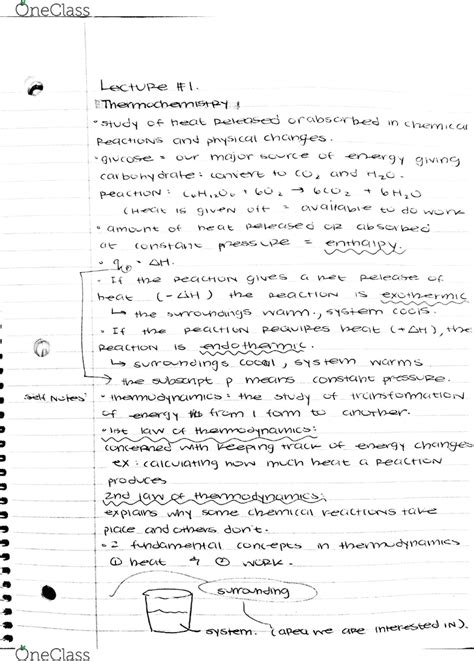 OneClass
Lecture #1.
Thermochemistry:
• study of heat released or absorbed in chemical
reactions and physical changes.
• glucose = our major source of energy giving
carbohydrate: convert to CO₂ and H₂O.
reaction: C₆H₁₂O₆ + 6O₂ → 6CO₂ + 6H₂O
(Heat is given off = available to do work
• amount of heat released or absorbed
at constant pressure = enthalpy.
• qp = ΔH.
• If the reaction gives a net release of
heat (-ΔH) the reaction is exothermic
↳ the surroundings warm, system cools.
• If the reaction requires heat (+ΔH), the
reaction is endothermic.
↳ surroundings cool, system warms
→ the subscript p means constant pressure.
Self Notes: • thermodynamics: the study of transformation
of energy from 1 form to another.
• 1st law of thermodynamics:
concerned with keeping track of energy changes
ex: calculating how much heat a reaction
produces
2nd law of thermodynamics:
explains why some chemical reactions take
place and others don't.
• 2 fundamental concepts in thermodynamics
① heat & ② work.
surrounding
system. (area we are interested in).
OneClass